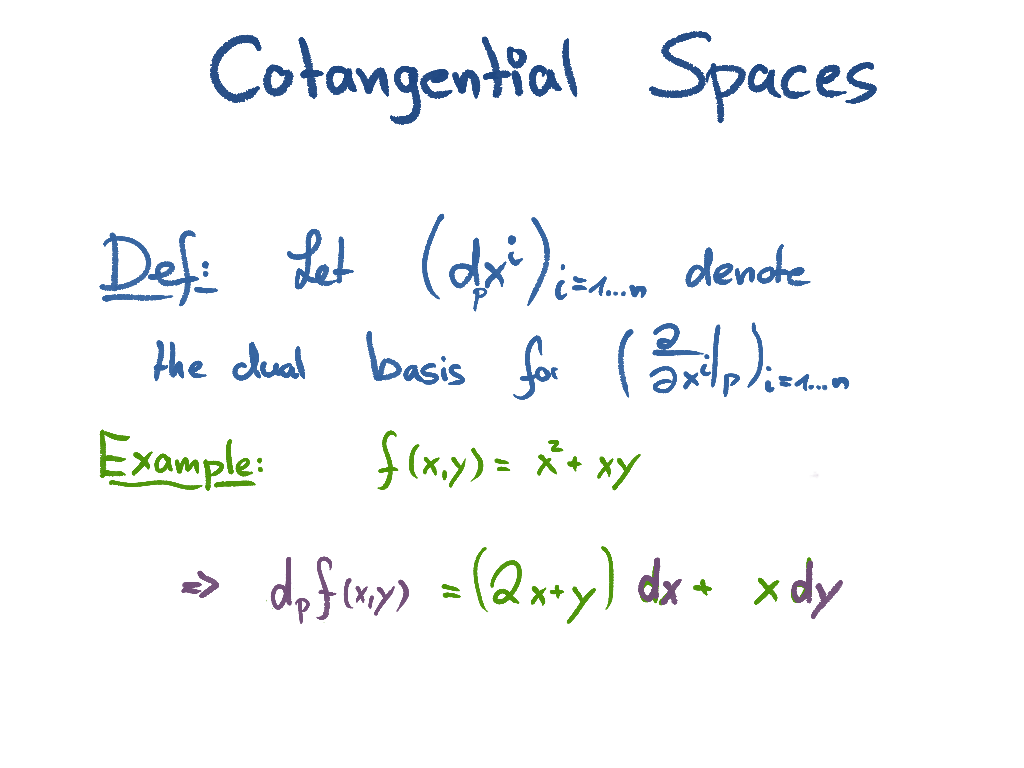 Cotangential Spaces
Def: Let (dₚxⁱ)ᵢ₌₁...ₙ denote
the dual basis for (∂/∂xⁱ|ₚ)ᵢ₌₁...ₙ
Example: f(x,y) = x² + xy
⇒ dₚf(x,y) = (2x+y) dx + x dy